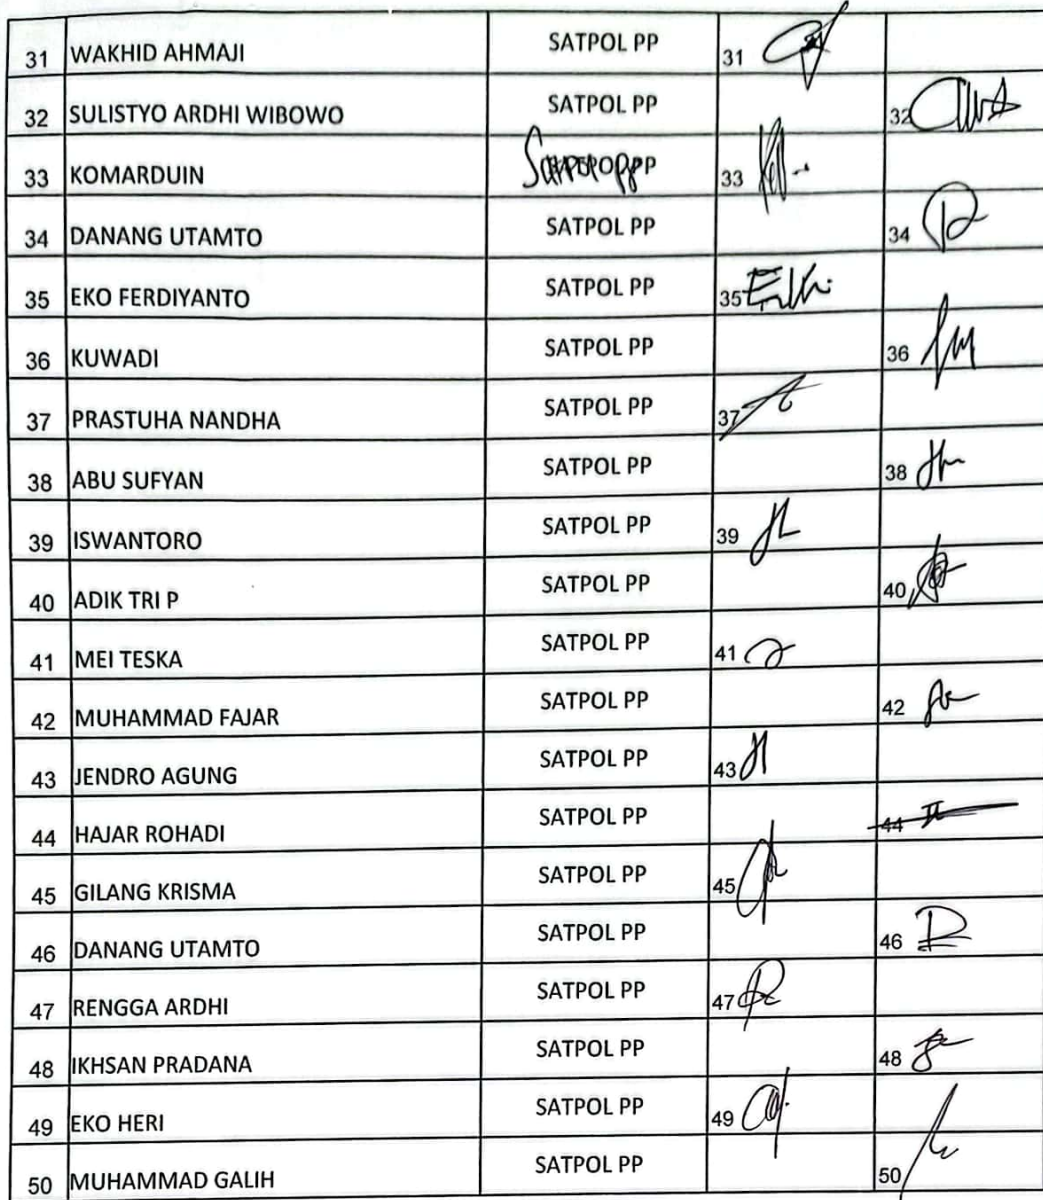 31 WAKHID AHMAJI SATPOL PP 31
32 SULISTYO ARDHI WIBOWO SATPOL PP 32
33 KOMARDUIN Satpol PP 33
34 DANANG UTAMTO SATPOL PP 34
35 EKO FERDIYANTO SATPOL PP 35
36 KUWADI SATPOL PP 36
37 PRASTUHA NANDHA SATPOL PP 37
38 ABU SUFYAN SATPOL PP 38
39 ISWANTORO SATPOL PP 39
40 ADIK TRI P SATPOL PP 40
41 MEI TESKA SATPOL PP 41
42 MUHAMMAD FAJAR SATPOL PP 42
43 JENDRO AGUNG SATPOL PP 43
44 HAJAR ROHADI SATPOL PP 44
45 GILANG KRISMA SATPOL PP 45
46 DANANG UTAMTO SATPOL PP 46
47 RENGGA ARDHI SATPOL PP 47
48 IKHSAN PRADANA SATPOL PP 48
49 EKO HERI SATPOL PP 49
50 MUHAMMAD GALIH SATPOL PP 50